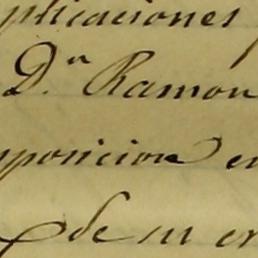 plicaciones
D.ⁿ Ramon
posicion en
de su